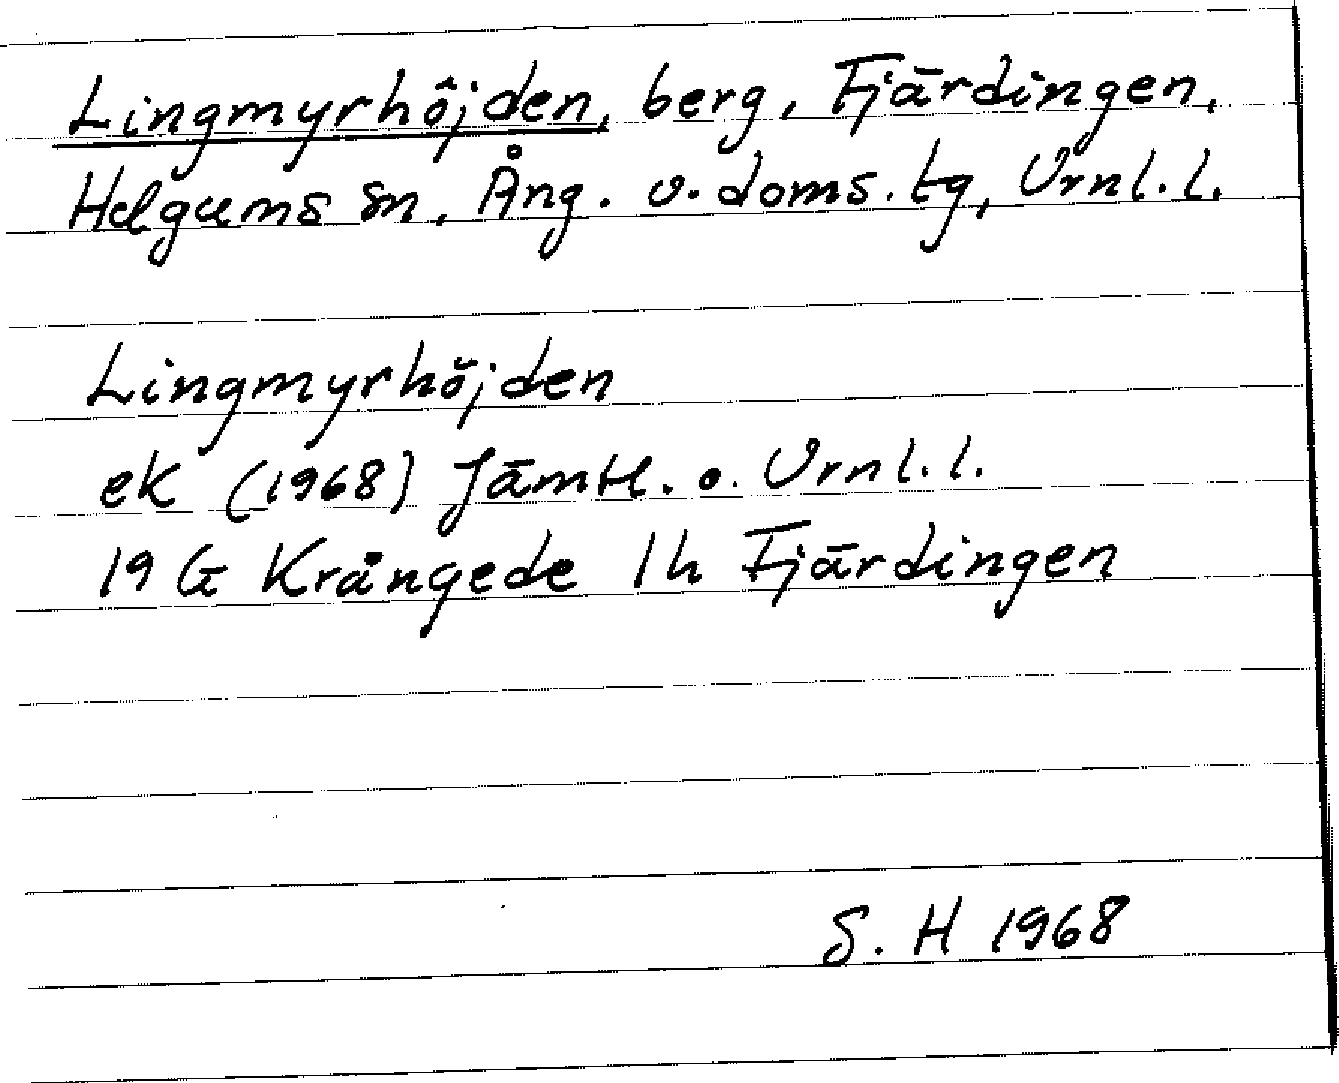 Lingmyrhöjden, berg, Fjärdingen,
Helgums sn, Ång. v. doms. tg, Vrnl. l.
Lingmyrhöjden
ek (1968) Jämtl. o. Vrnl. l.
19 G Krångede 1h Fjärdingen
S. H 1968